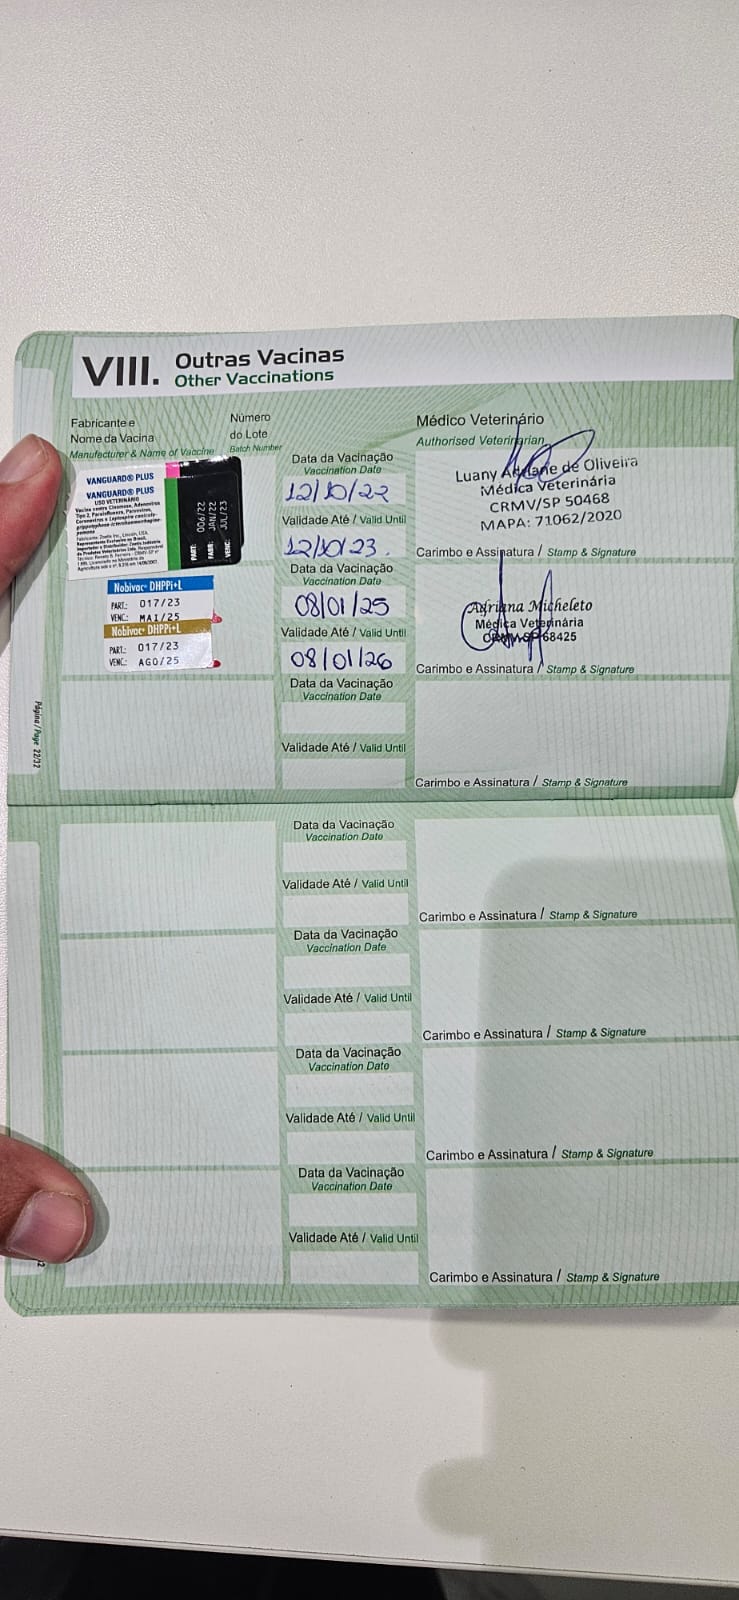 VIII. Outras Vacinas
Other Vaccinations
Fabricante e
Nome da Vacina
Manufacturer & Name of Vaccine
Número
do Lote
Batch Number
Médico Veterinário
Authorised Veterinarian
VANGUARD® PLUS
VANGUARD® PLUS
USO VETERINÁRIO
Vacina contra Cinomose, Adenovírus
Tipo 2, Parainfluenza, Parvovírus,
Coronavírus e Leptospira canicola-
PART: 006/22
FABR: JAN/22
VENC: JUL/23
Data da Vacinação
Vaccination Date
12/10/22
Validade Até / Valid Until
12/10/23.
Luany Adriane de Oliveira
Médica Veterinária
CRMV/SP 50468
MAPA: 71062/2020
Carimbo e Assinatura / Stamp & Signature
Nobivac® DHPPi+L
PART: 017/23
VENC: MAI/25
Nobivac® DHPPi+L
PART: 017/23
VENC: AGO/25
Data da Vacinação
Vaccination Date
08/01/25
Validade Até / Valid Until
08/01/26
Adriana Micheleto
Médica Veterinária
CRMV-SP 68425
Carimbo e Assinatura / Stamp & Signature
Data da Vacinação
Vaccination Date
Validade Até / Valid Until
Carimbo e Assinatura / Stamp & Signature
Página / Page 22/32
Data da Vacinação
Vaccination Date
Validade Até / Valid Until
Carimbo e Assinatura / Stamp & Signature
Data da Vacinação
Vaccination Date
Validade Até / Valid Until
Carimbo e Assinatura / Stamp & Signature
Data da Vacinação
Vaccination Date
Validade Até / Valid Until
Carimbo e Assinatura / Stamp & Signature
Data da Vacinação
Vaccination Date
Validade Até / Valid Until
Carimbo e Assinatura / Stamp & Signature